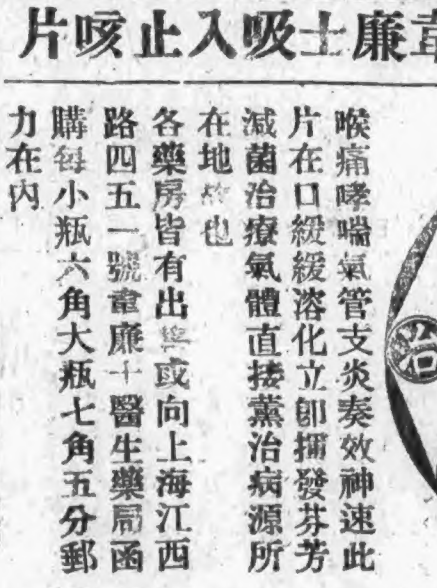 韋廉士吸入止咳片
喉痛哮喘氣管支炎奏效神速此
片在口緩緩溶化立卽揮發芬芳
滅菌治療氣體直接薰治病源所
在地故也
各藥房皆有出售或向上海江西
路四五一號韋廉士醫生藥局函
購每小瓶六角大瓶七角五分郵
力在內